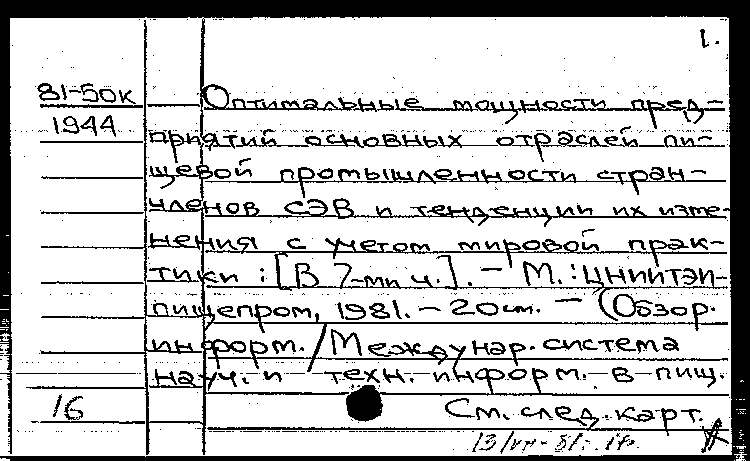 1.
81-50к Оптимальные мощности пред-
1944 приятий основных отраслей пи-
щевой промышленности стран-
членов СЭВ и тенденции их изме-
нения с учетом мировой прак-
тики : [В 7-ми ч.]. - М. : ЦНИИТЭИ-
пищепром, 1981. - 20 см. - (Обзор.
информ. / Междунар. система
науч. и техн. информ. в пищ.
16 См. след. карт.